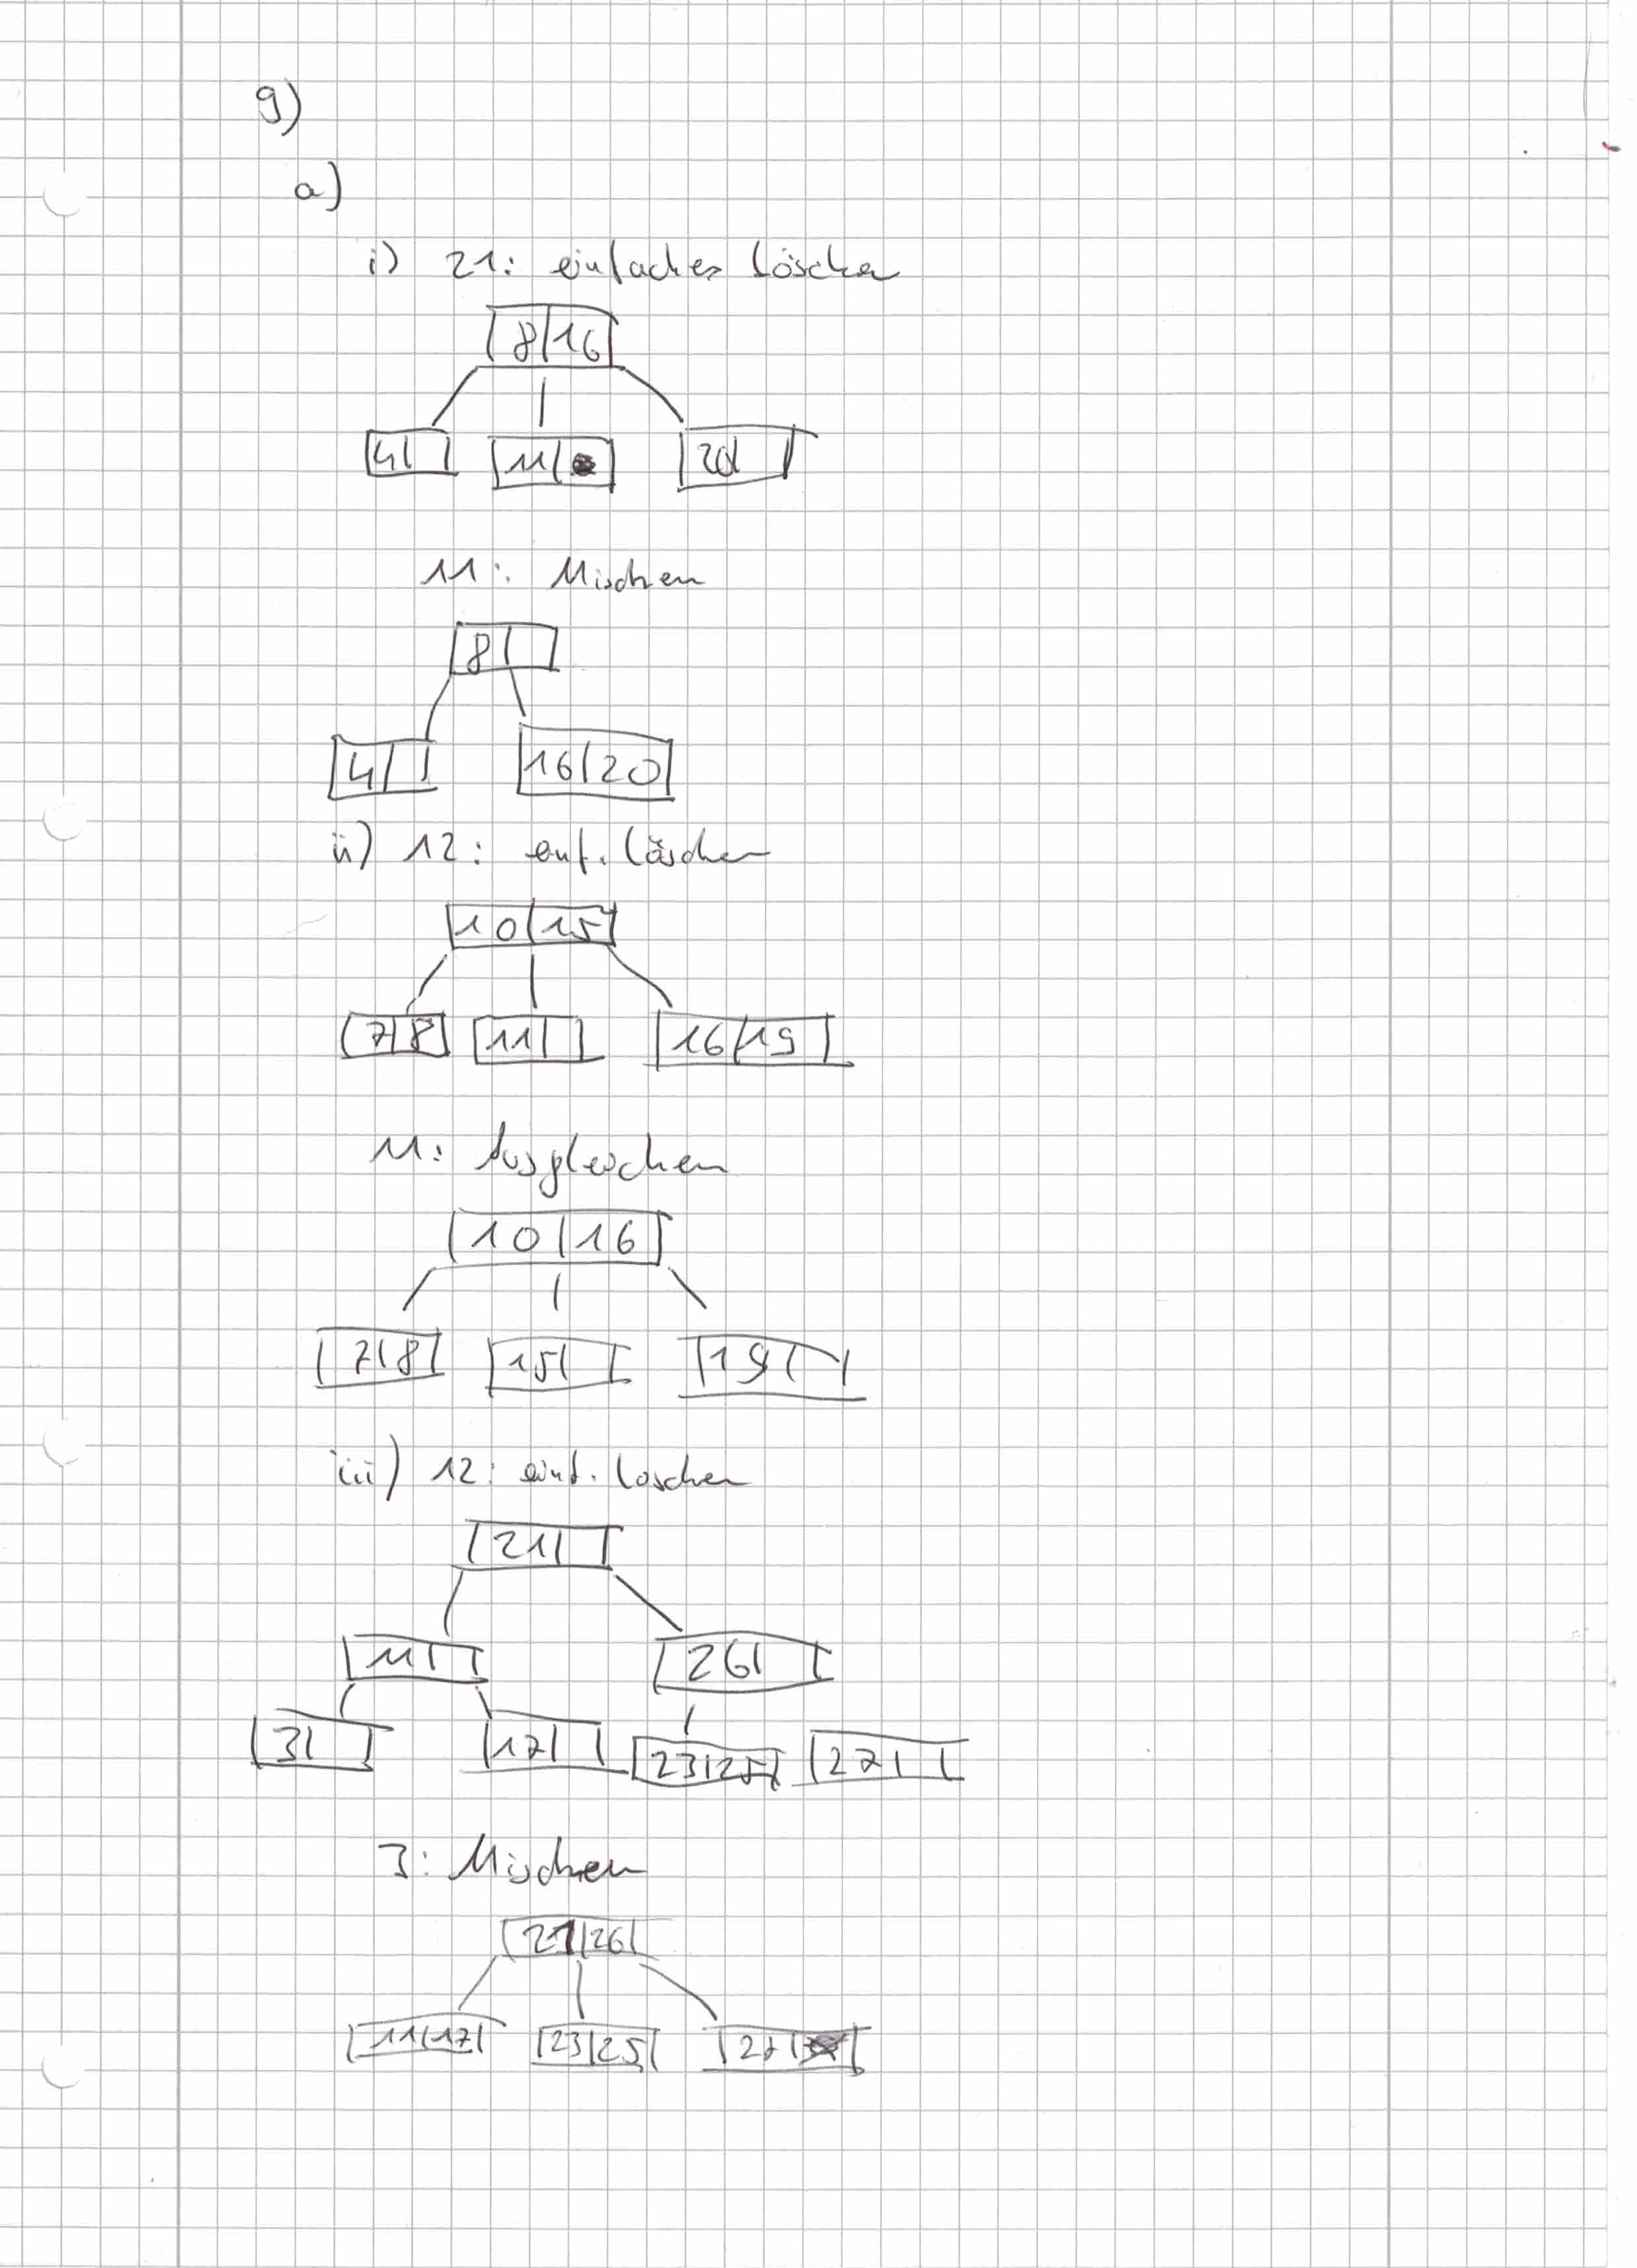 9)
a)
i) 21: einfaches Löschen
8 | 16
4 | 11 | 20 |
11: Mischen
8 |
4 | 16 | 20
ii) 12: einf. Löschen
10 | 15
7 | 8 11 | 16 | 19
11: Ausgleichen
10 | 16
7 | 8 15 | 19 |
iii) 12: einf. löschen
21 |
11 | 26 |
3 | 17 | 23 | 25 27 |
3: Mischen
21 | 26
11 | 17 23 | 25 27 |